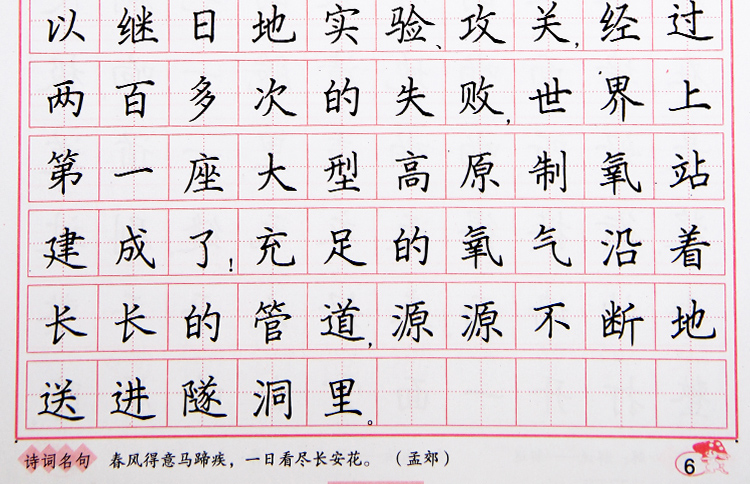 以继日地实验、攻关,经过
两百多次的失败,世界上
第一座大型高原制氧站
建成了!充足的氧气沿着
长长的管道,源源不断地
送进隧洞里。
诗词名句 春风得意马蹄疾，一日看尽长安花。（孟郊）
6